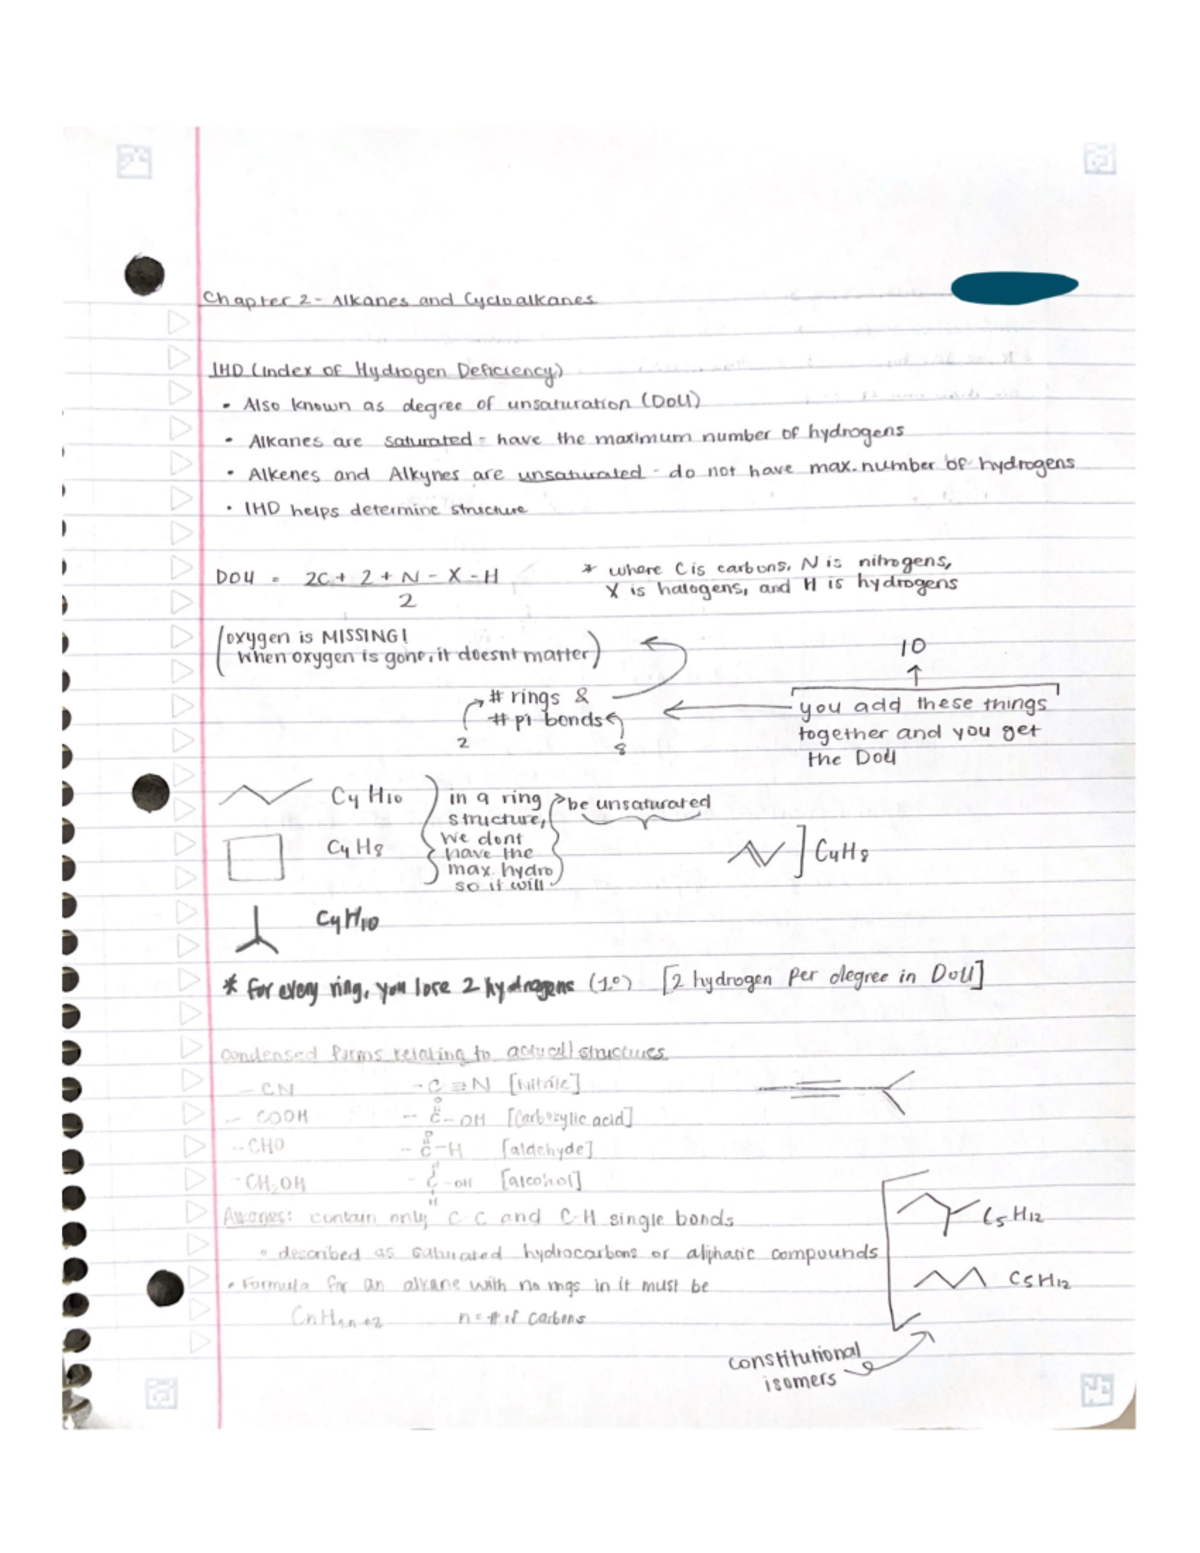 Chapter 2 - Alkanes and Cycloalkanes
IHD (Index of Hydrogen Deficiency)
• Also known as degree of unsaturation (DoU)
• Alkanes are saturated - have the maximum number of hydrogens
• Alkenes and Alkynes are unsaturated - do not have max. number of hydrogens
• IHD helps determine structure
DOU = 2C + 2 + N - X - H
2
* where C is carbons, N is nitrogens,
X is halogens, and H is hydrogens
(oxygen is MISSING!
when oxygen is gone, it doesnt matter)
10
# rings &
# pi bonds
2
8
you add these things
together and you get
the DoU
C4H10
C4H8
in a ring
structure,
we dont
have the
max. hydro
so it will
be unsaturated
C4H8
C4H10
* for every ring, you lose 2 hydrogens (1°) [2 hydrogen per degree in DoU]
condensed forms relating to actual structures
- CN - C ≡ N [nitrile]
- COOH - C - OH [carboxylic acid]
O
- CHO - C - H [aldehyde]
O
- CH2OH - C - OH [alcohol]
H
H
Alkanes: contain only C-C and C-H single bonds
• described as saturated hydrocarbons or aliphatic compounds
• Formula for an alkane with no rings in it must be
CnH2n+2 n = # of carbons
C5H12
C5H12
constitutional
isomers